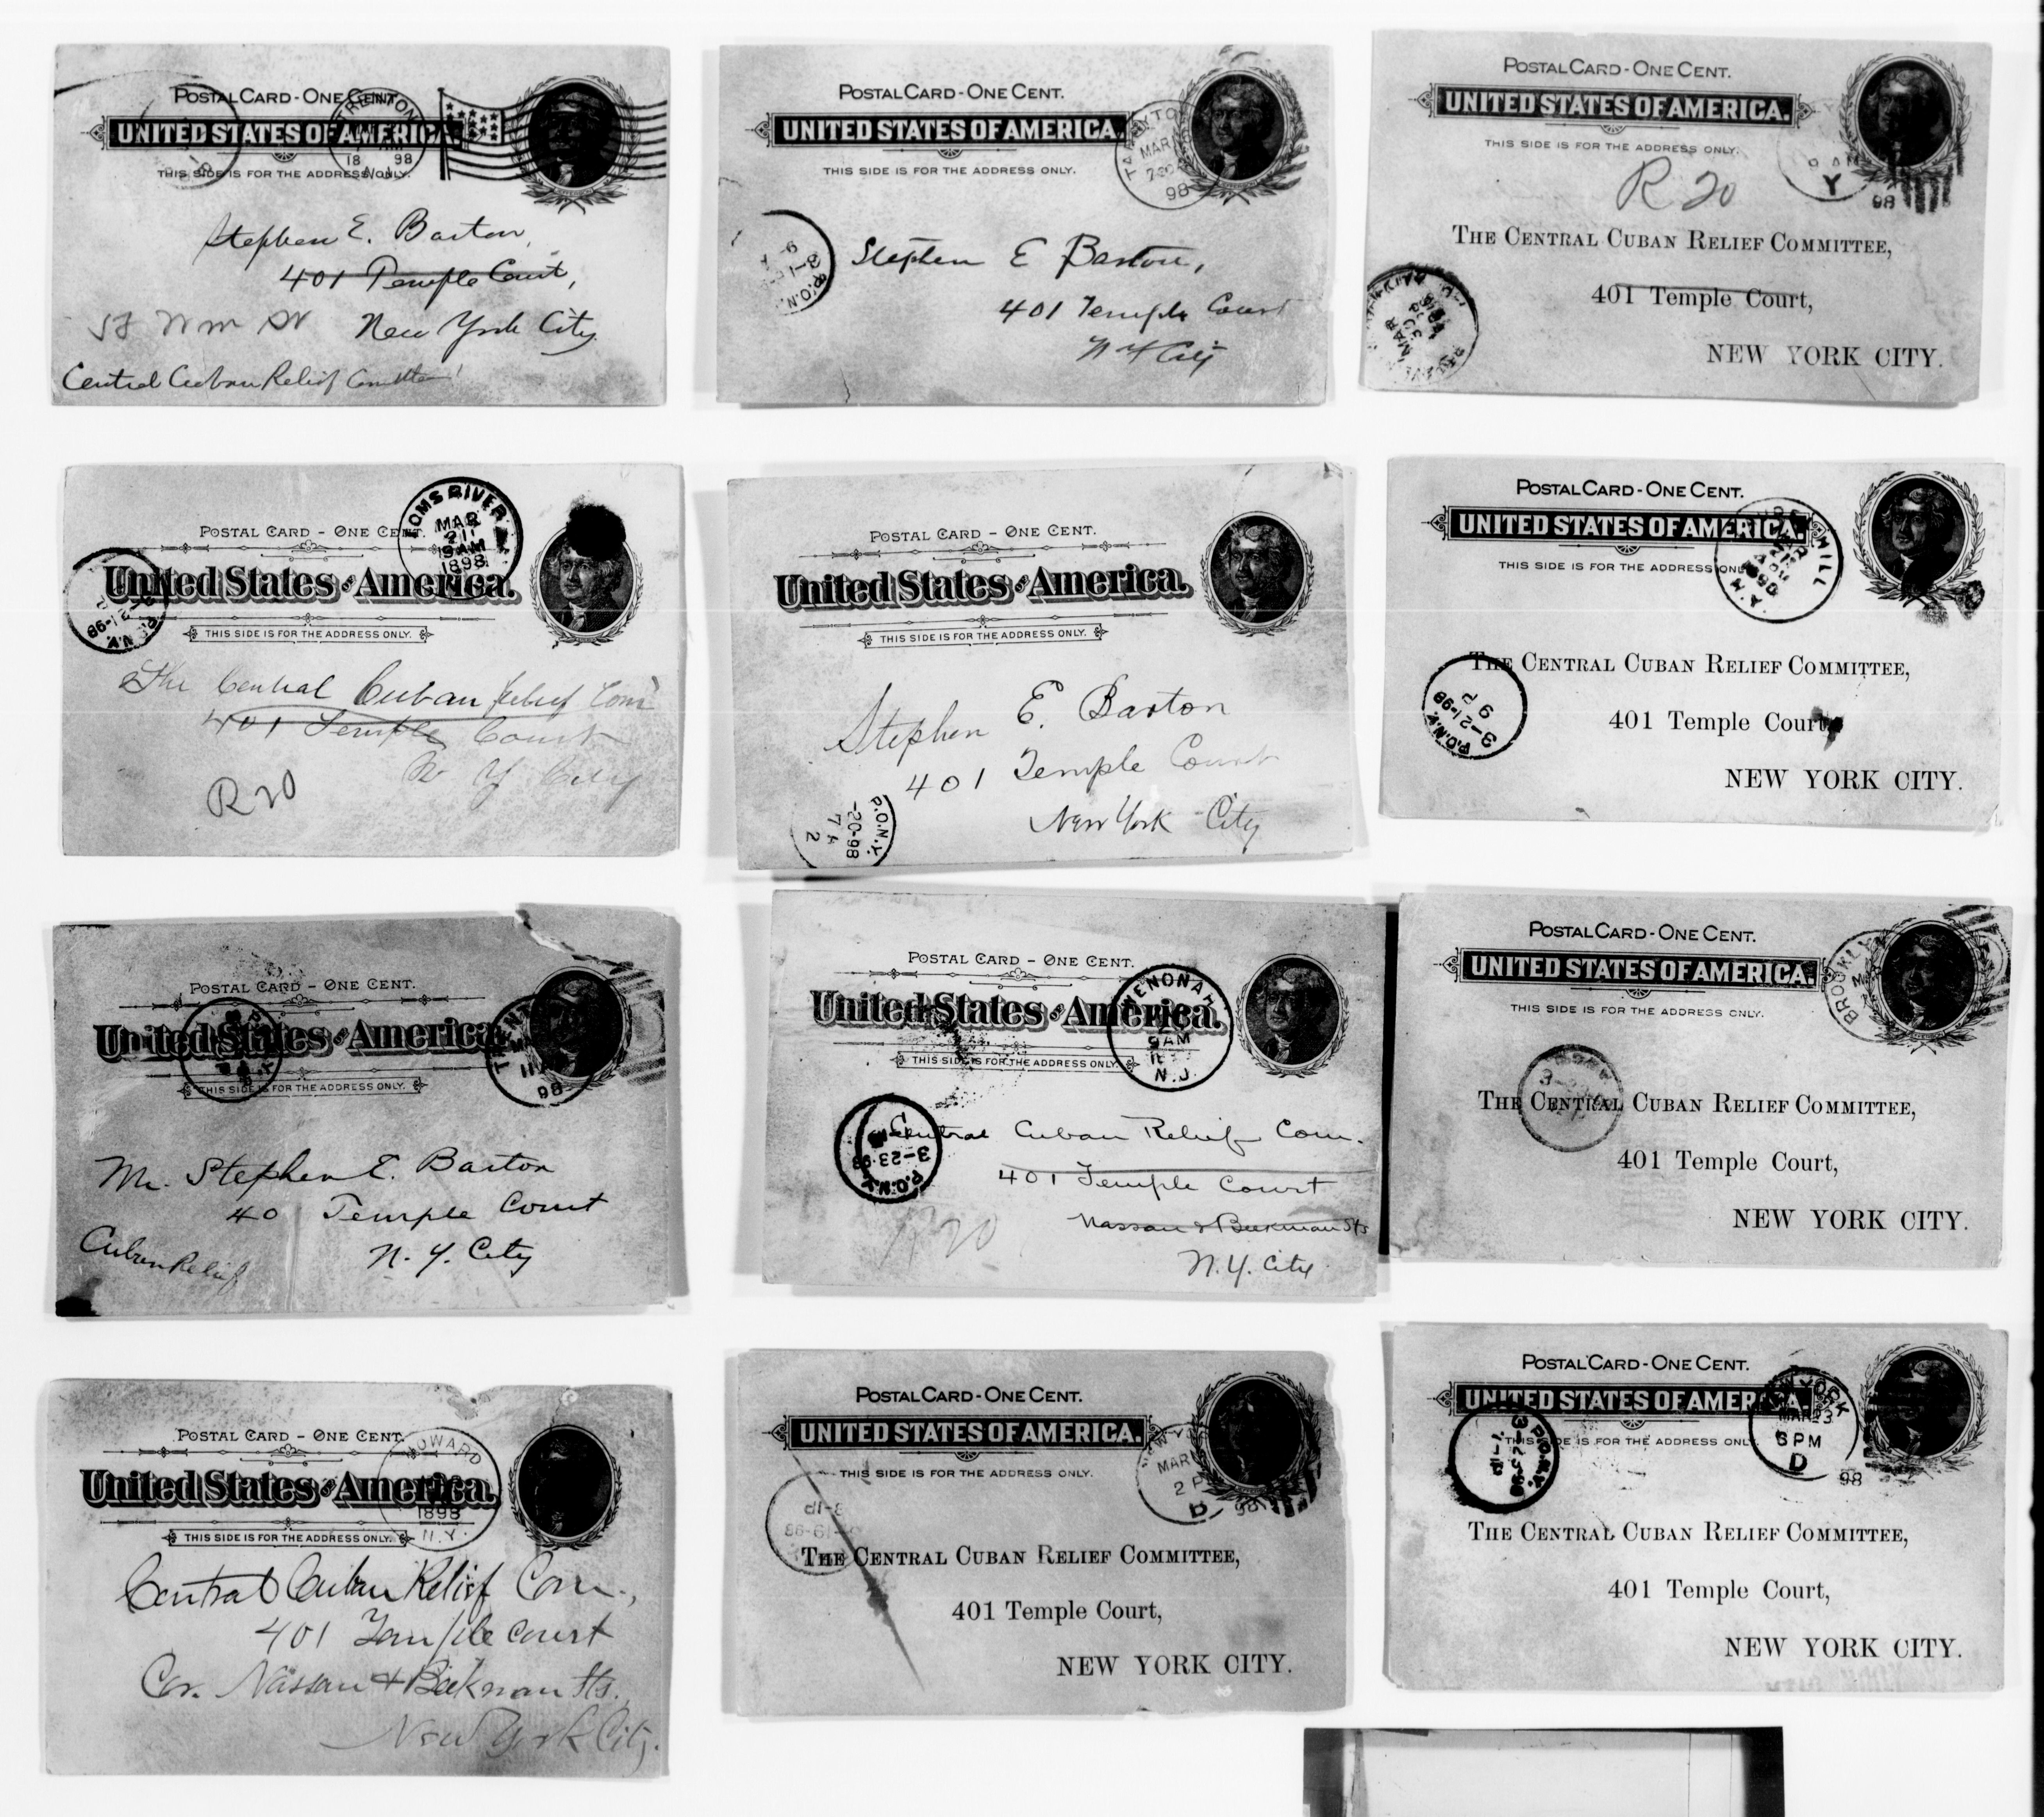 POSTAL CARD - ONE CENT.
UNITED STATES OF AMERICA.
THIS SIDE IS FOR THE ADDRESS ONLY.
TRENTON
18 98
N.J.
Stephen E. Barton,
401 Temple Court,
New York City
Central Cuban Relief Committee
POSTAL CARD - ONE CENT.
UNITED STATES OF AMERICA.
THIS SIDE IS FOR THE ADDRESS ONLY.
MAR
98
P.O.N.
Stephen E Barton,
401 Temple Court
N Y City
POSTAL CARD - ONE CENT.
UNITED STATES OF AMERICA.
THIS SIDE IS FOR THE ADDRESS ONLY.
Y
98
R 20
THE CENTRAL CUBAN RELIEF COMMITTEE,
401 Temple Court,
NEW YORK CITY.
MAR
30
POSTAL CARD - ONE CENT.
United States of America.
THIS SIDE IS FOR THE ADDRESS ONLY.
TOMS RIVER
MAR
21
9AM
1898
The Central Cuban Relief Com
401 Temple Court
N Y City
R 20
POSTAL CARD - ONE CENT.
United States of America.
THIS SIDE IS FOR THE ADDRESS ONLY.
Stephen E. Barton
401 Temple Court
New York City
P.O.N.Y.
-20-98
7 A
2
POSTAL CARD - ONE CENT.
UNITED STATES OF AMERICA.
THIS SIDE IS FOR THE ADDRESS ONLY.
THE CENTRAL CUBAN RELIEF COMMITTEE,
401 Temple Court,
NEW YORK CITY.
P.O.N.Y.
3-21-98
POSTAL CARD - ONE CENT.
United States of America.
THIS SIDE IS FOR THE ADDRESS ONLY.
98
Mr. Stephen E. Barton
40 Temple Court
N. Y. City
Cuban Relief
POSTAL CARD - ONE CENT.
United States of America.
THIS SIDE IS FOR THE ADDRESS ONLY.
WENONAH
9AM
N.J.
P.O.N.Y.
3-23-98
Central Cuban Relief Com.
401 Temple Court
Nassau & Beekman Sts
N.Y. City
R 20
POSTAL CARD - ONE CENT.
UNITED STATES OF AMERICA.
THIS SIDE IS FOR THE ADDRESS ONLY.
BROOKLYN
THE CENTRAL CUBAN RELIEF COMMITTEE,
401 Temple Court,
NEW YORK CITY.
POSTAL CARD - ONE CENT.
United States of America.
THIS SIDE IS FOR THE ADDRESS ONLY.
1898
N.Y.
Central Cuban Relief Com.,
401 Temple Court
Cor. Nassau & Beekman Sts.
New York City.
POSTAL CARD - ONE CENT.
UNITED STATES OF AMERICA.
THIS SIDE IS FOR THE ADDRESS ONLY.
MAR
2 P
D
98
THE CENTRAL CUBAN RELIEF COMMITTEE,
401 Temple Court,
NEW YORK CITY.
POSTAL CARD - ONE CENT.
UNITED STATES OF AMERICA.
THIS SIDE IS FOR THE ADDRESS ONLY.
MAR 23
6 PM
D
98
THE CENTRAL CUBAN RELIEF COMMITTEE,
401 Temple Court,
NEW YORK CITY.